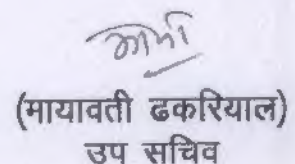 (मायावती ढकरियाल)
उप सचिव